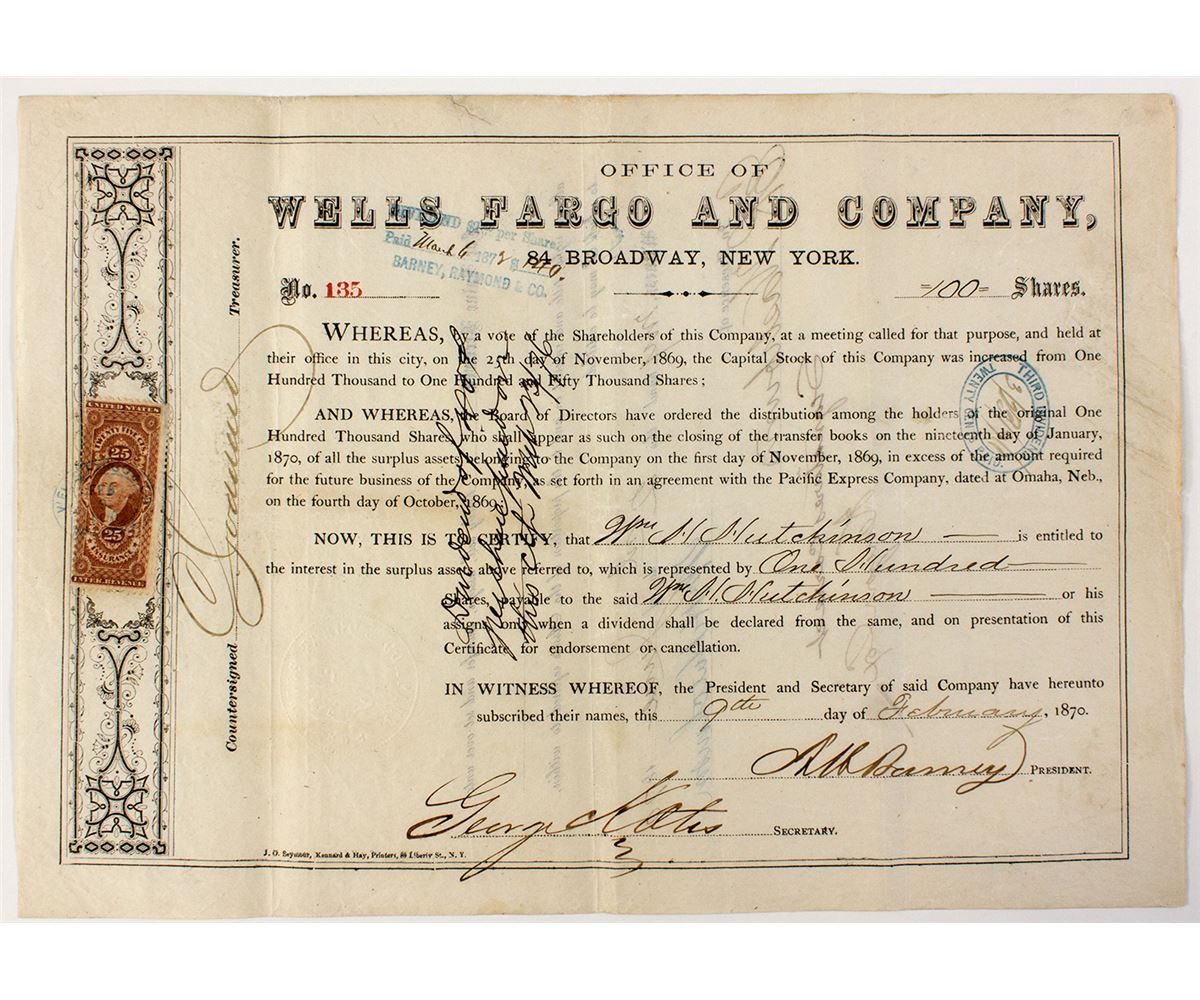 OFFICE OF
WELLS FARGO AND COMPANY,
84 BROADWAY, NEW YORK.
DIVIDEND per Share
Paid March 6 1872 $140.
BARNEY, RAYMOND & CO.
No. 135
=100= Shares.
WHEREAS, by a vote of the Shareholders of this Company, at a meeting called for that purpose, and held at
their office in this city, on the 25th day of November, 1869, the Capital Stock of this Company was increased from One
Hundred Thousand to One Hundred and Fifty Thousand Shares;
AND WHEREAS, the Board of Directors have ordered the distribution among the holders of the original One
Hundred Thousand Shares, who shall appear as such on the closing of the transfer books on the nineteenth day of January,
1870, of all the surplus assets belonging to the Company on the first day of November, 1869, in excess of the amount required
for the future business of the Company, as set forth in an agreement with the Pacific Express Company, dated at Omaha, Neb.,
on the fourth day of October, 1869.
NOW, THIS IS TO CERTIFY, that Wm H Hutchinson is entitled to
the interest in the surplus assets above referred to, which is represented by One Hundred
Shares, payable to the said Wm H. Hutchinson or his
assigns only when a dividend shall be declared from the same, and on presentation of this
Certificate for endorsement or cancellation.
IN WITNESS WHEREOF, the President and Secretary of said Company have hereunto
subscribed their names, this 9th day of February, 1870.
A H Barney PRESIDENT.
George K Otis SECRETARY.
J. O. Seymour, Kennard & Hay, Printers, 89 Liberty St., N. Y.
Countersigned Treasurer.
Dividend of
per share paid on
this
THIRD DIVIDEND
TWENTY CENTS
UNITED STATES
25
25
INSURANCE
INTER. REVENUE